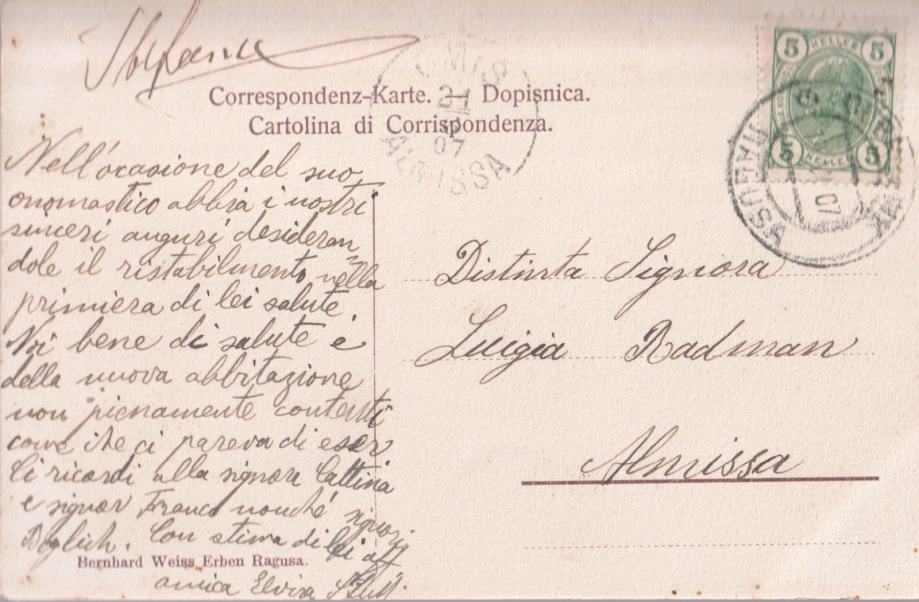 Correspondenz-Karte. — Dopisnica.
Cartolina di Corrispondenza.
OMIŠ
21
07
ALMISSA
5 HELLER 5
5 HELLER 5
RAGUSA
07
Nell'ocasione del suo
onomastico abbia i nostri
sinceri auguri desideran=
dole il ristabilmento nella
primiera di lei salute.
Noi bene di salute e
della nuova abbitazione
non pienamente contenti
come che ci pareva di eser
Ci ricordi alla signora Cattina
e signor Franco nonché signori
Con stima di lei
amica Elvira
Distinta Signora
Luigia Radman
Almissa
Bernhard Weiss Erben Ragusa.